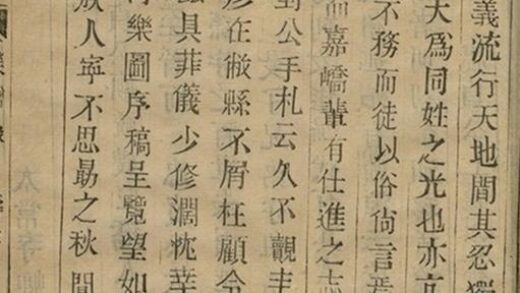 義流行天地間其忍獨
大爲同姓之光也亦
不務而徒以俗尙言
而嘉嶠輩有仕進之志
公手札云久不覿
在敝縣不屑枉顧今
具菲儀少修潤忱幸
樂圖序稿呈覽望如
人寧不思勗之秋間